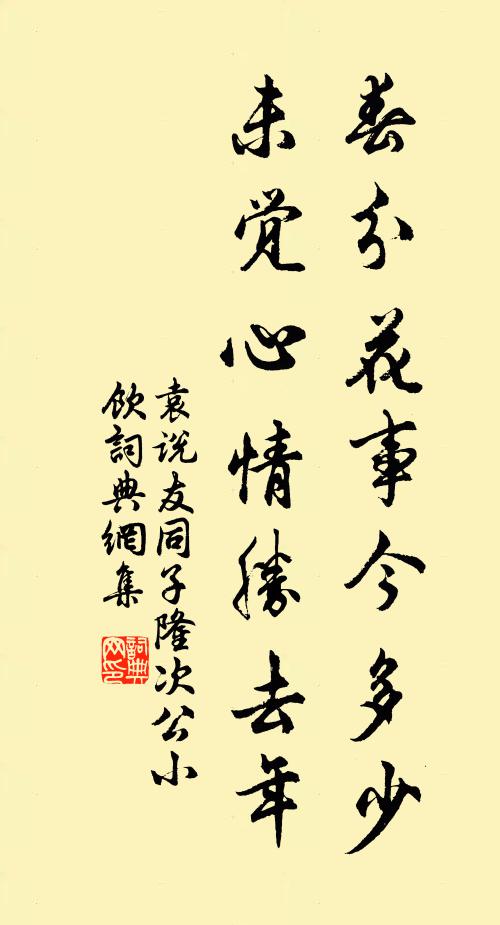 春分花事今多少
未觉心情勝去年
袁说友同子隆次公小
飲詞典網集
詞典
网印